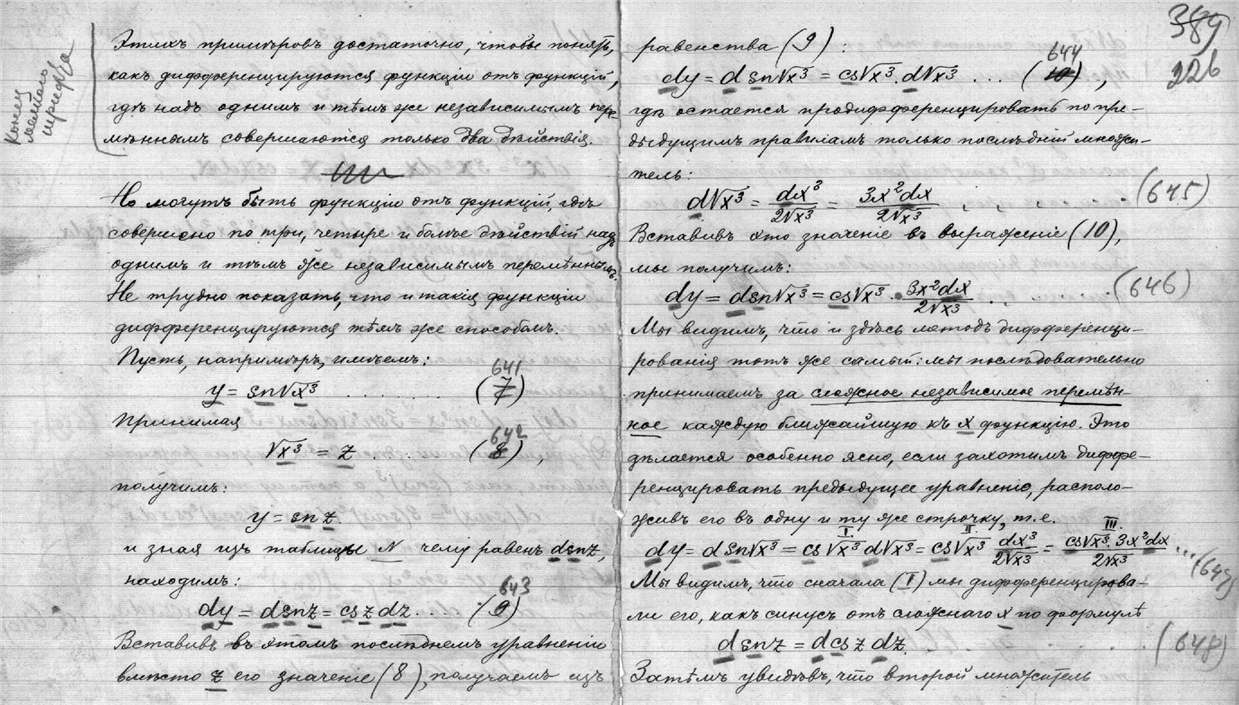 389
226
Конец
мелкаго
шрифта
Этихъ примѣровъ достаточно, чтобы понять,
какъ дифференцируются функціи отъ функцій,
гдѣ надъ однимъ и тѣмъ же независимымъ пере-
мѣннымъ совершаются только два дѣйствія.
Но могутъ быть функціи отъ функцій, гдѣ
совершено по три, четыре и болѣе дѣйствій надъ
однимъ и тѣмъ же независимымъ перемѣннымъ.
Не трудно показать, что и такія функціи
дифференцируются тѣмъ же способомъ.
Пусть, напримѣръ, имѣемъ:
y = sn√x³ . . . . . . . . (7) 641
Принимая
√x³ = z . . . . . . (8) 642,
получимъ:
y = sn z.
и зная изъ таблицы N чему равенъ dsnz,
находимъ:
dy = dsnz = cs z dz . . . (9) 643
Вставивъ въ этомъ послѣднемъ уравненіи
вмѣсто z его значеніе (8), получаемъ изъ
равенства (9) :
dy = d sn√x³ = cs√x³. d√x³ . . . (10) 644,
гдѣ остается продифференцировать по пре-
дыдущимъ правиламъ только послѣдній множи-
тель:
d√x³ = dx³/2√x³ = 3x²dx/2√x³ . (645)
Вставивъ это значеніе въ выраженіе (10),
мы получимъ:
dy = dsn√x³ = cs√x³ . 3x²dx/2√x³ . . . (646)
Мы видимъ, что и здѣсь методъ дифференци-
рованія тотъ же самый: мы послѣдовательно
принимаемъ за сложное независимое перемѣн-
ное каждую ближайшую къ x функцію. Это
дѣлается особенно ясно, если захотимъ диффе-
ренцировать предыдущее уравненіе, располо-
живъ его въ одну и ту же строчку, т.е.
I. II. III.
dy = d sn√x³ = cs√x³ d√x³ = cs√x³ dx³/2√x³ = cs√x³.3x²dx/2√x³ ... (647)
Мы видимъ, что сначала (I) мы дифференцирова-
ли его, какъ синусъ отъ сложнаго x по формулѣ
d snz = dcs z dz. (648)
Затѣмъ увидѣвъ, что второй множитель